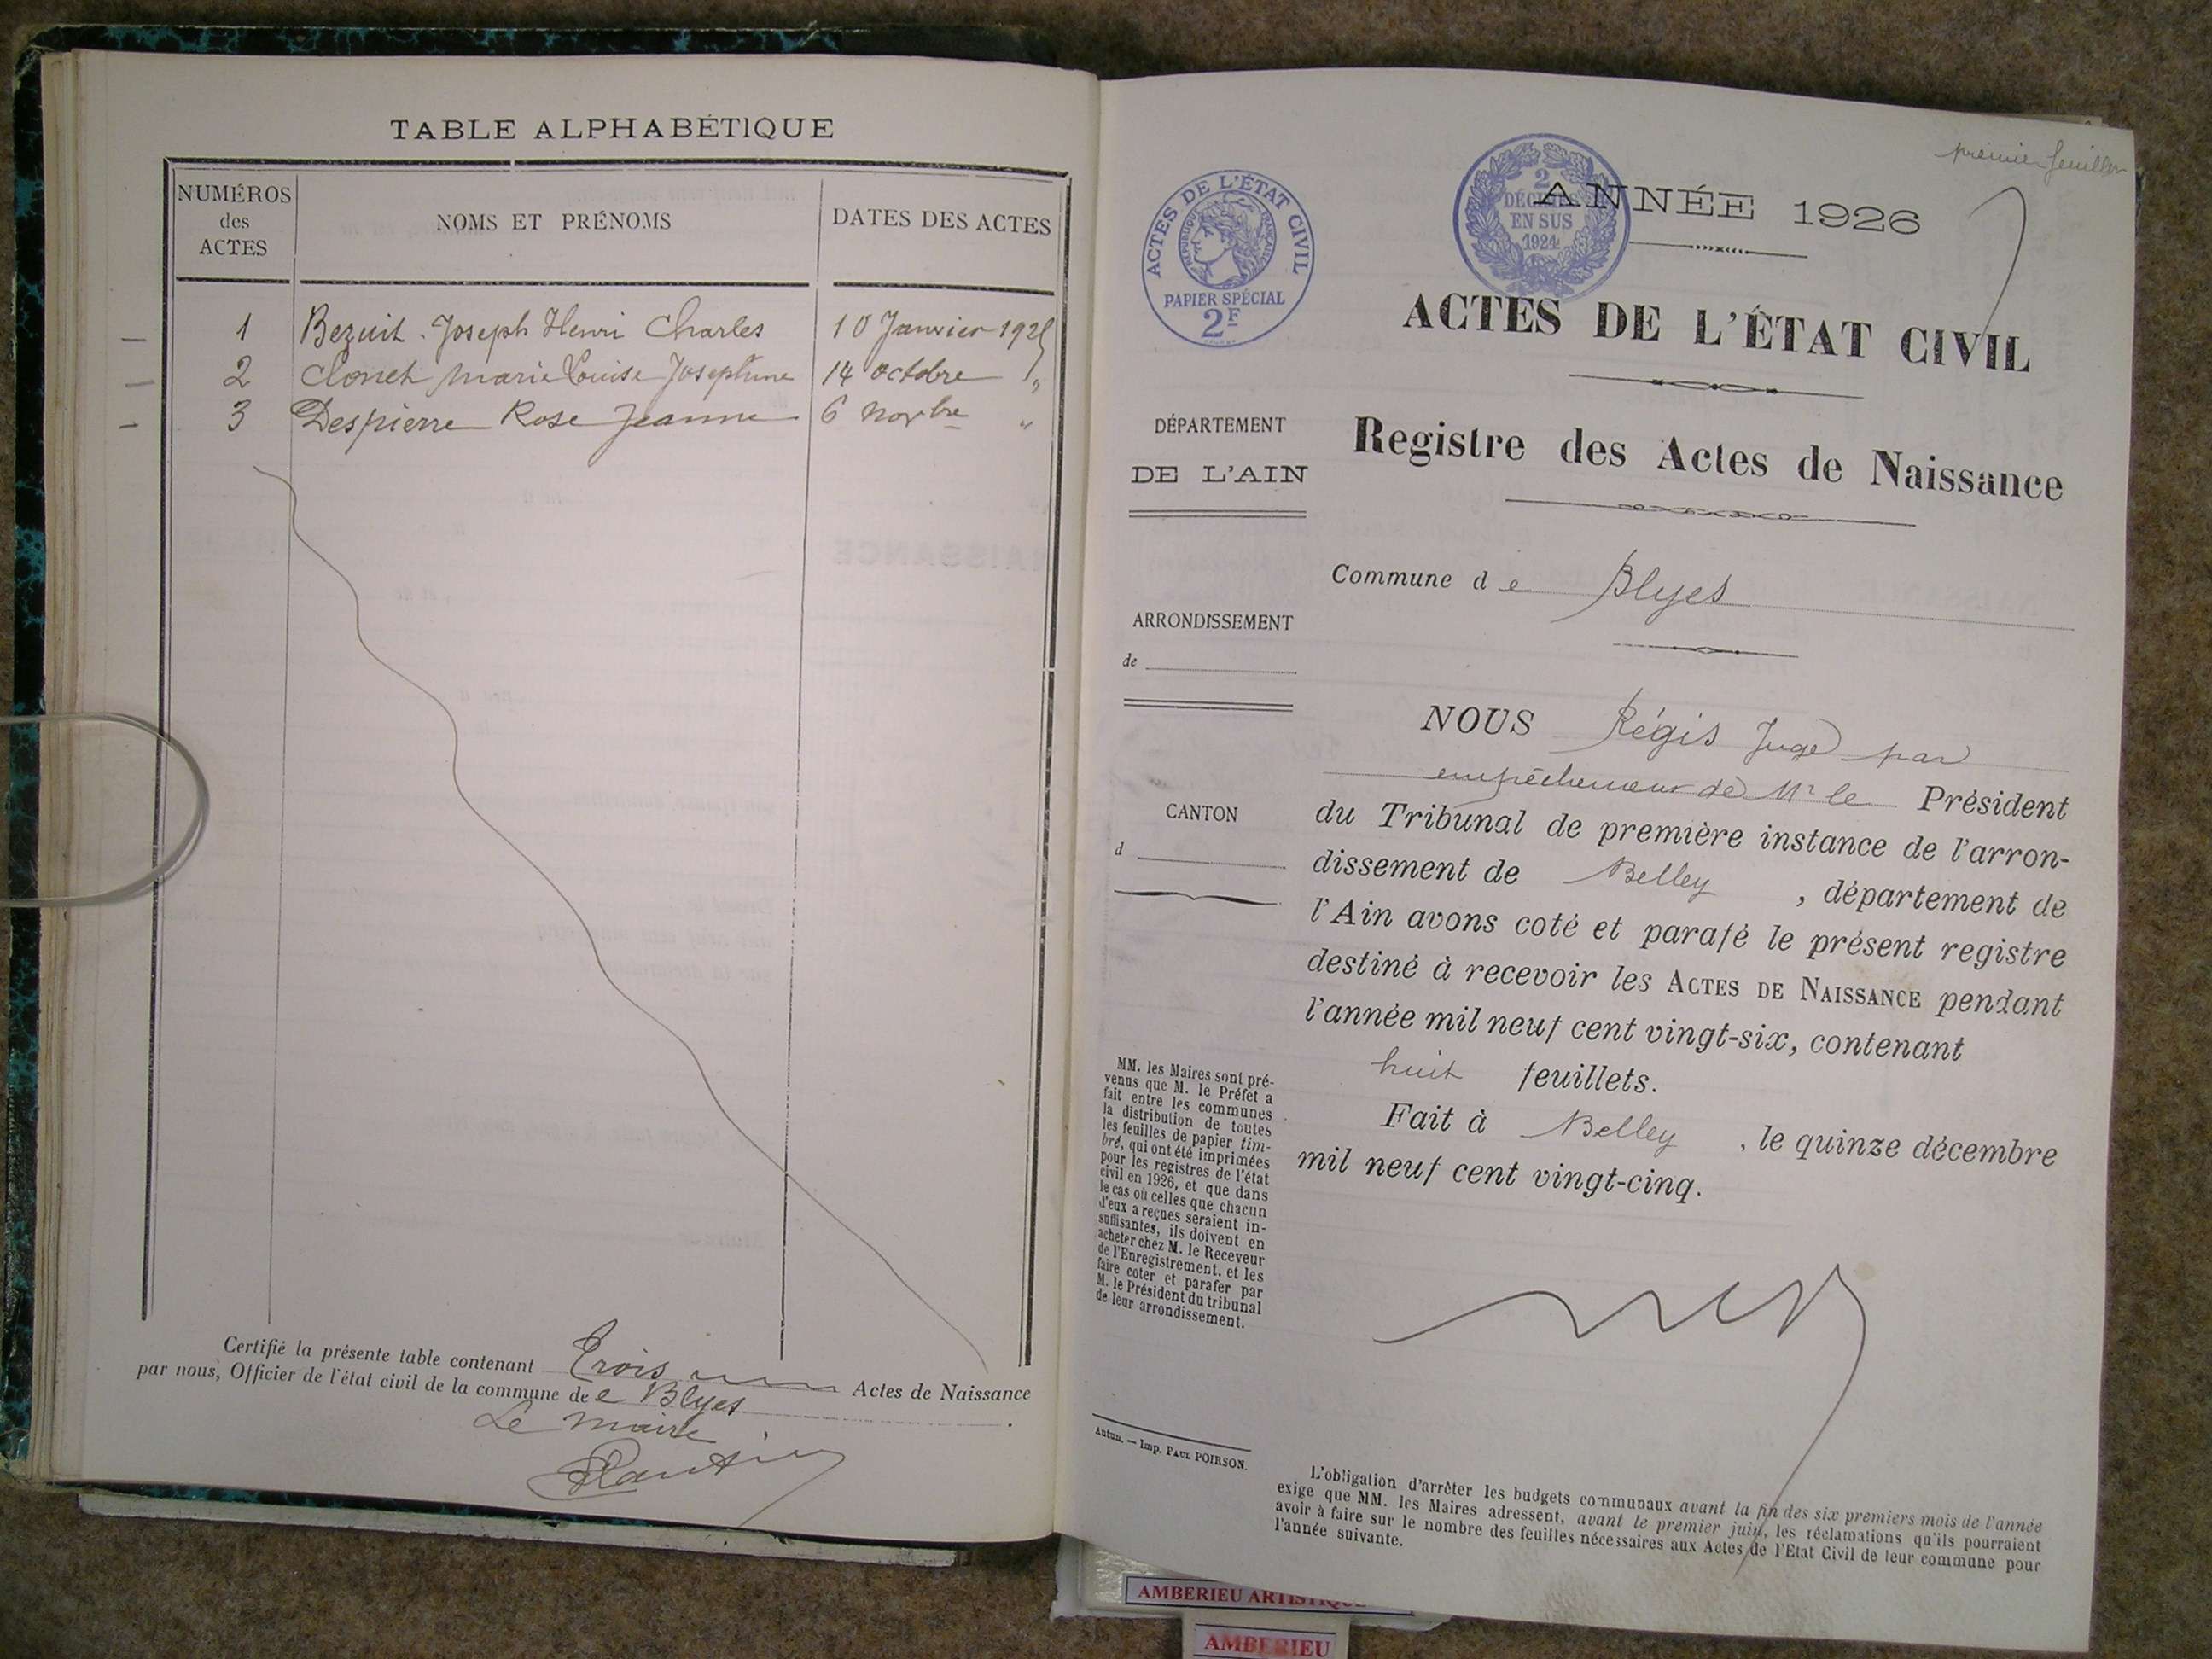 TABLE ALPHABÉTIQUE
NUMÉROS
des
ACTES
NOMS ET PRÉNOMS
DATES DES ACTES
1 Bezuit Joseph Henri Charles 10 Janvier 1925
2 Clonet Marie Louise Joséphine 14 octobre "
3 Despierre Rose Jeanne 6 novbre "
Certifié la présente table contenant Trois Actes de Naissance
par nous, Officier de l'état civil de la commune de e Blyes
Le Maire
premier feuillet
ACTES DE L'ÉTAT CIVIL
RÉPUBLIQUE FRANÇAISE
PAPIER SPÉCIAL
2F
2
DÉCIMES
EN SUS
1924
ANNÉE 1926
ACTES DE L'ÉTAT CIVIL
Registre des Actes de Naissance
DÉPARTEMENT
DE L'AIN
Commune d e Blyes
ARRONDISSEMENT
de
CANTON
d
NOUS Régis Juge par
empêchement de Mr le Président
du Tribunal de première instance de l'arron-
dissement de Belley, département de
l'Ain avons coté et parafé le présent registre
destiné à recevoir les ACTES DE NAISSANCE pendant
l'année mil neuf cent vingt-six, contenant
huit feuillets.
Fait à Belley, le quinze décembre
mil neuf cent vingt-cinq.
MM. les Maires sont pré-
venus que M. le Préfet a
fait entre les communes
la distribution de toutes
les feuilles de papier tim-
bré, qui ont été imprimées
pour les registres de l'état
civil en 1926, et que dans
le cas où celles que chacun
d'eux a reçues seraient in-
suffisantes, ils doivent en
acheter chez M. le Receveur
de l'Enregistrement, et les
faire coter et parafer par
M. le Président du tribunal
de leur arrondissement.
Autun. — Imp. PAUL POIRSON.
L'obligation d'arrêter les budgets communaux avant la fin des six premiers mois de l'année
exige que MM. les Maires adressent, avant le premier juin, les réclamations qu'ils pourraient
avoir à faire sur le nombre des feuilles nécessaires aux Actes de l'Etat Civil de leur commune pour
l'année suivante.
AMBERIEU ARTISTIQUE
AMBERIEU